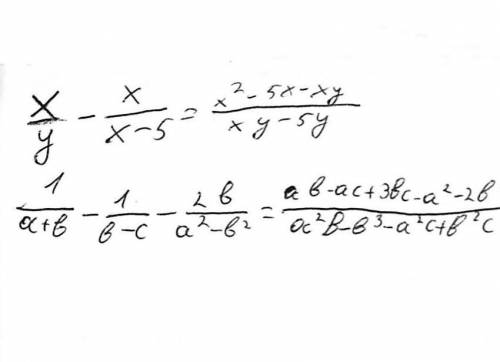 x/y - x/(x-5) = (x² - 5x - xy)/(xy - 5y)
1/(a+b) - 1/(b-c) - 2b/(a²-b²) = (ab - ac + 3bc - a² - 2b)/(a²b - b³ - a²c + b²c)